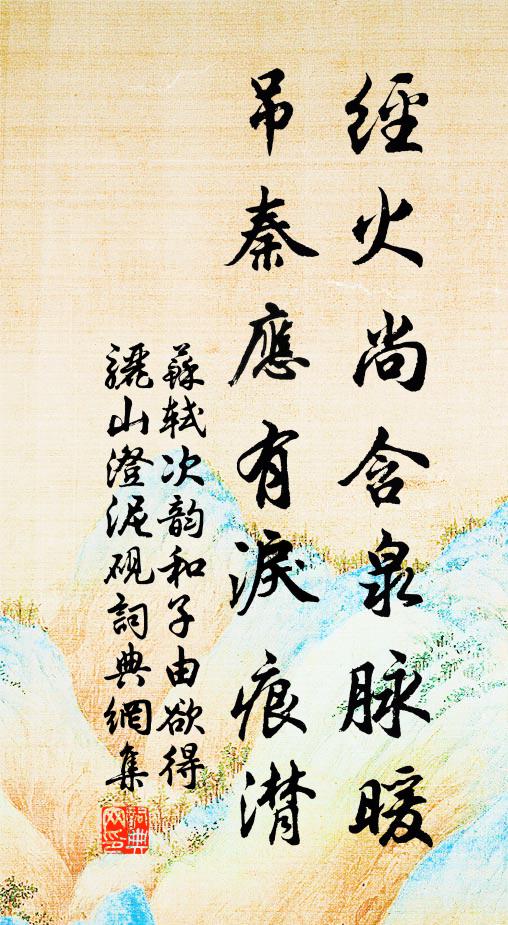 經火尚含泉脉暖
吊秦應有淚痕潸
蘇軾次韵和子由欲得
驪山澄泥硯詞典網集
詞典
网印